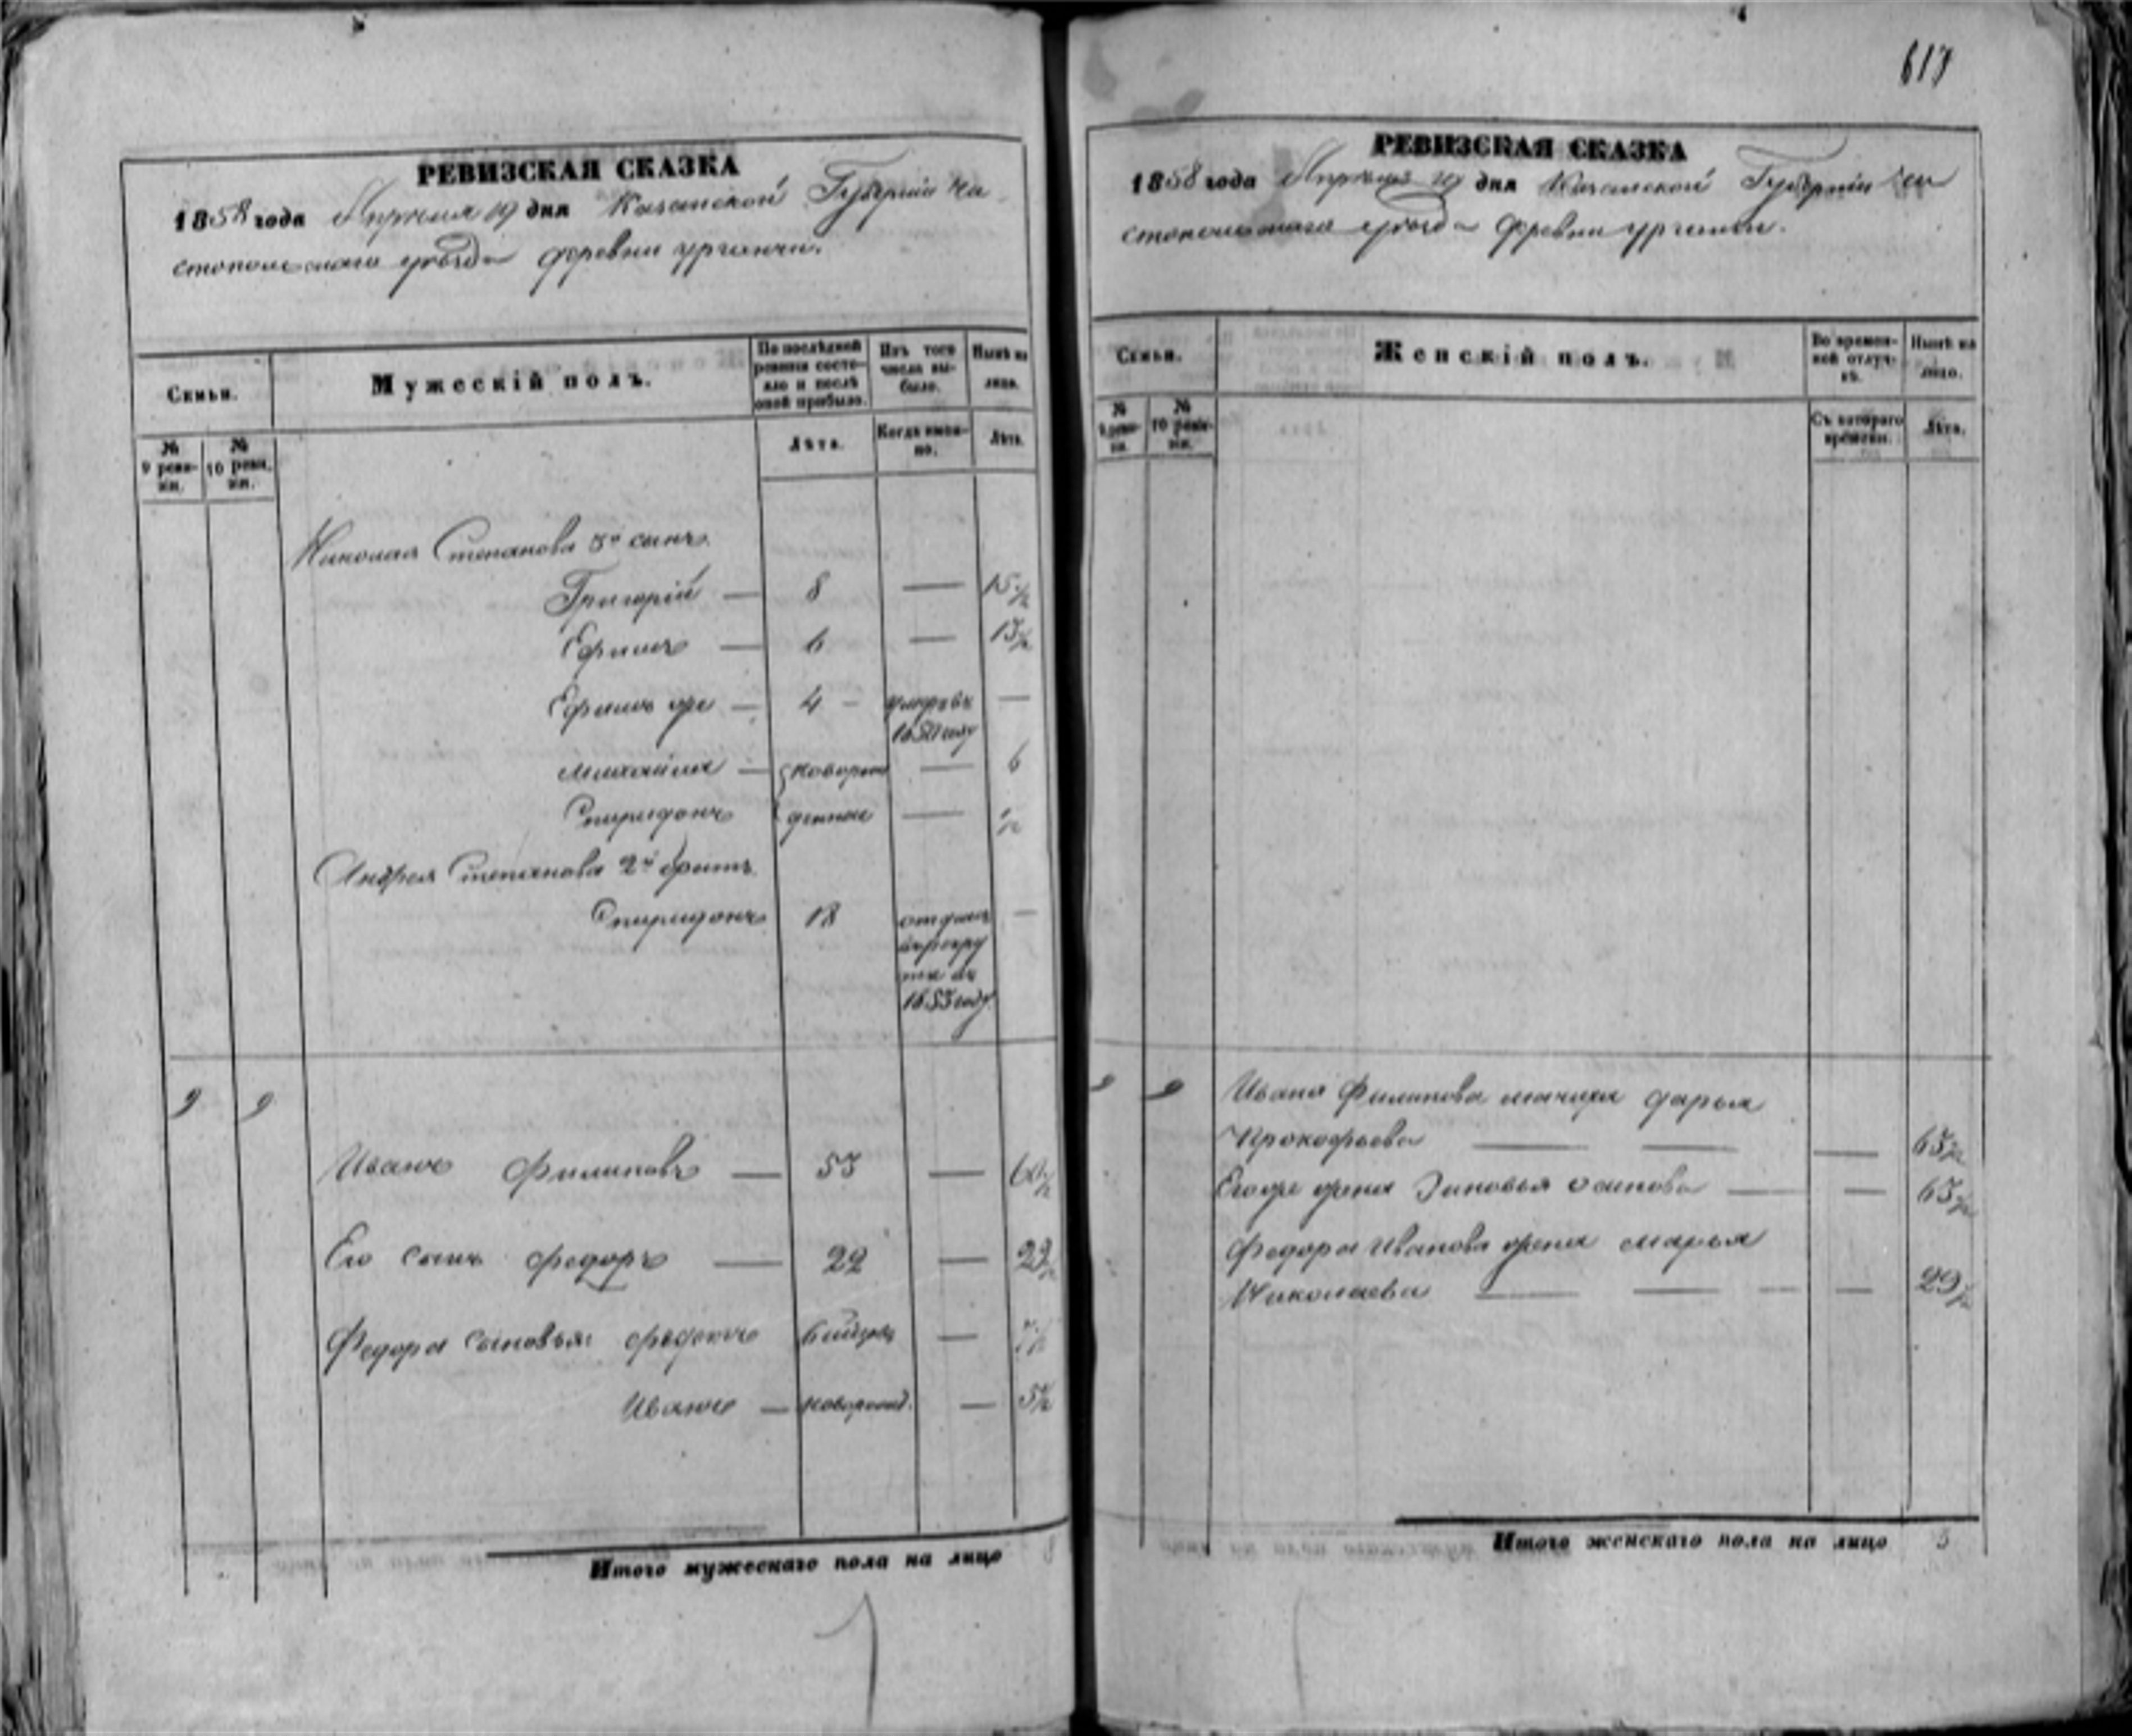 617
РЕВИЗСКАЯ СКАЗКА
1858 года Апреля 19 дня Казанской Губерніи Чи
стопольскаго уѣзда деревни Урганчи.
Семьи.
Мужескій полъ.
По послѣдней
ревизіи состо-
яло и послѣ
оной прибыло.
Изъ того
числа вы-
было.
Нынѣ на
лицо.
№
9 реви-
зіи.
№
10 реви-
зіи.
Лѣта.
Когда имен-
но.
Лѣта.
Николая Степанова 3й сынъ
Григорій — 8 — 15½
Ефимъ — 6 — 13½
Ефимъ же — 4 — умеръ въ —
1850 году
Михайла — новорож — 6
Спиридонъ денные — ½
Андрея Степанова 2й братъ
Спиридонъ 18 отданъ —
в рекру
ты въ
1853 году
9 9
Иванъ Филиповъ — 53 — 60½
Его сынъ Федоръ — 22 — 29½
Федора сыновья —
Иванъ — новорожд. — 5½
Итого мужескаго пола на лицо 8
РЕВИЗСКАЯ СКАЗКА
1858 года Апреля 19 дня Казанской Губерніи Чи
стопольскаго уѣзда деревни Урганчи.
Семьи.
Женскій полъ.
Во времен-
ной отлуч-
кѣ.
Нынѣ на
лицо.
№
9 реви-
зіи.
№
10 реви-
зіи.
Съ котораго
времени.
Лѣта.
9 9 Ивана Филипова мачиха Дарья
Прокофьева — — — 65½
Его же жена Зиновья Осипова — — 63½
Федора Иванова жена Марья
Николаева — — — — 29½
Итого женскаго пола на лицо 3